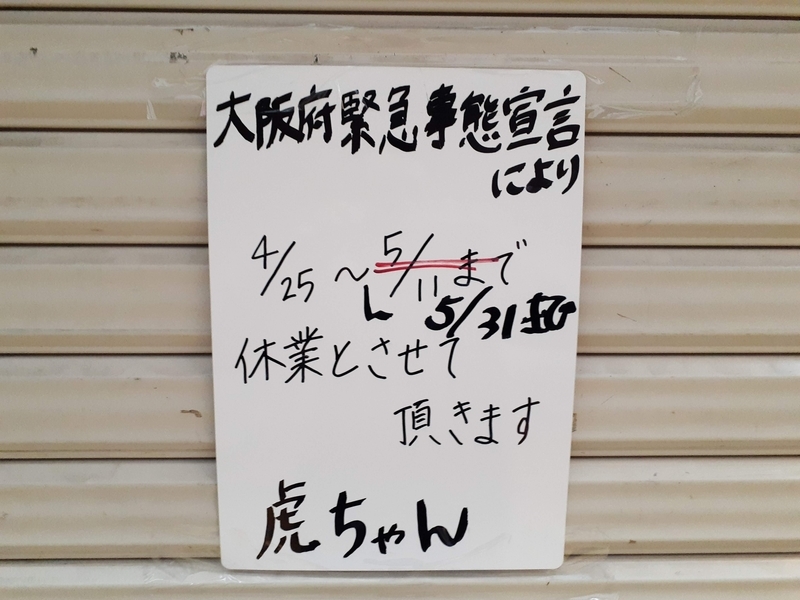 大阪府緊急事態宣言
により
4/25 ~ 5/11 まで
5/31迄
休業とさせて
頂きます
虎ちゃん